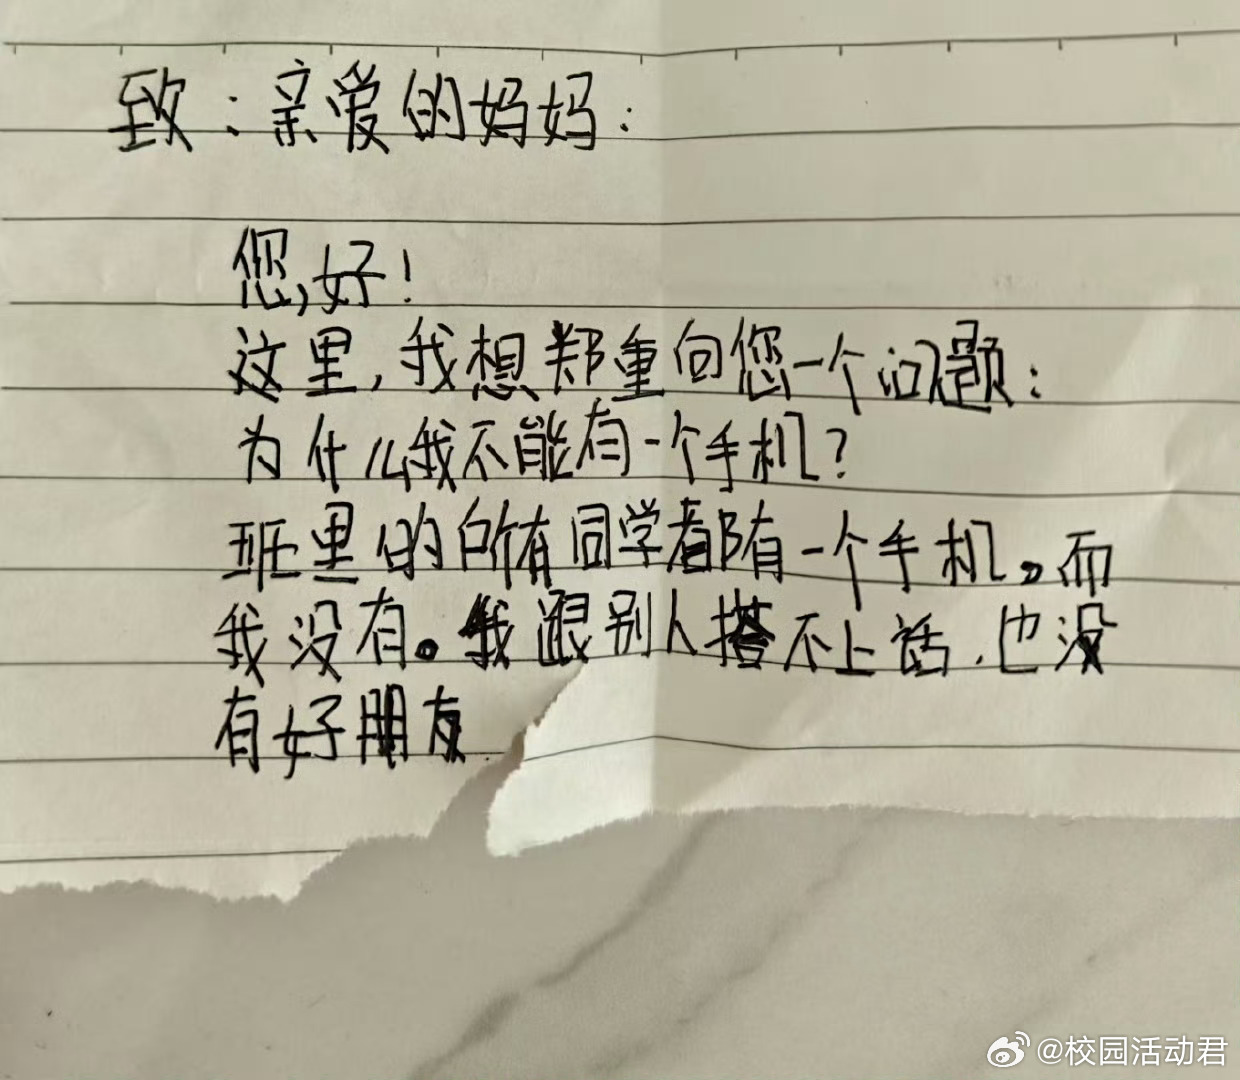 致：亲爱的妈妈：
您，好！
这里，我想郑重向您一个问题：
为什么我不能有一个手机？
班里的所有同学都有一个手机。而
我没有。我跟别人搭不上话，也没
有好朋友
@校园活动君